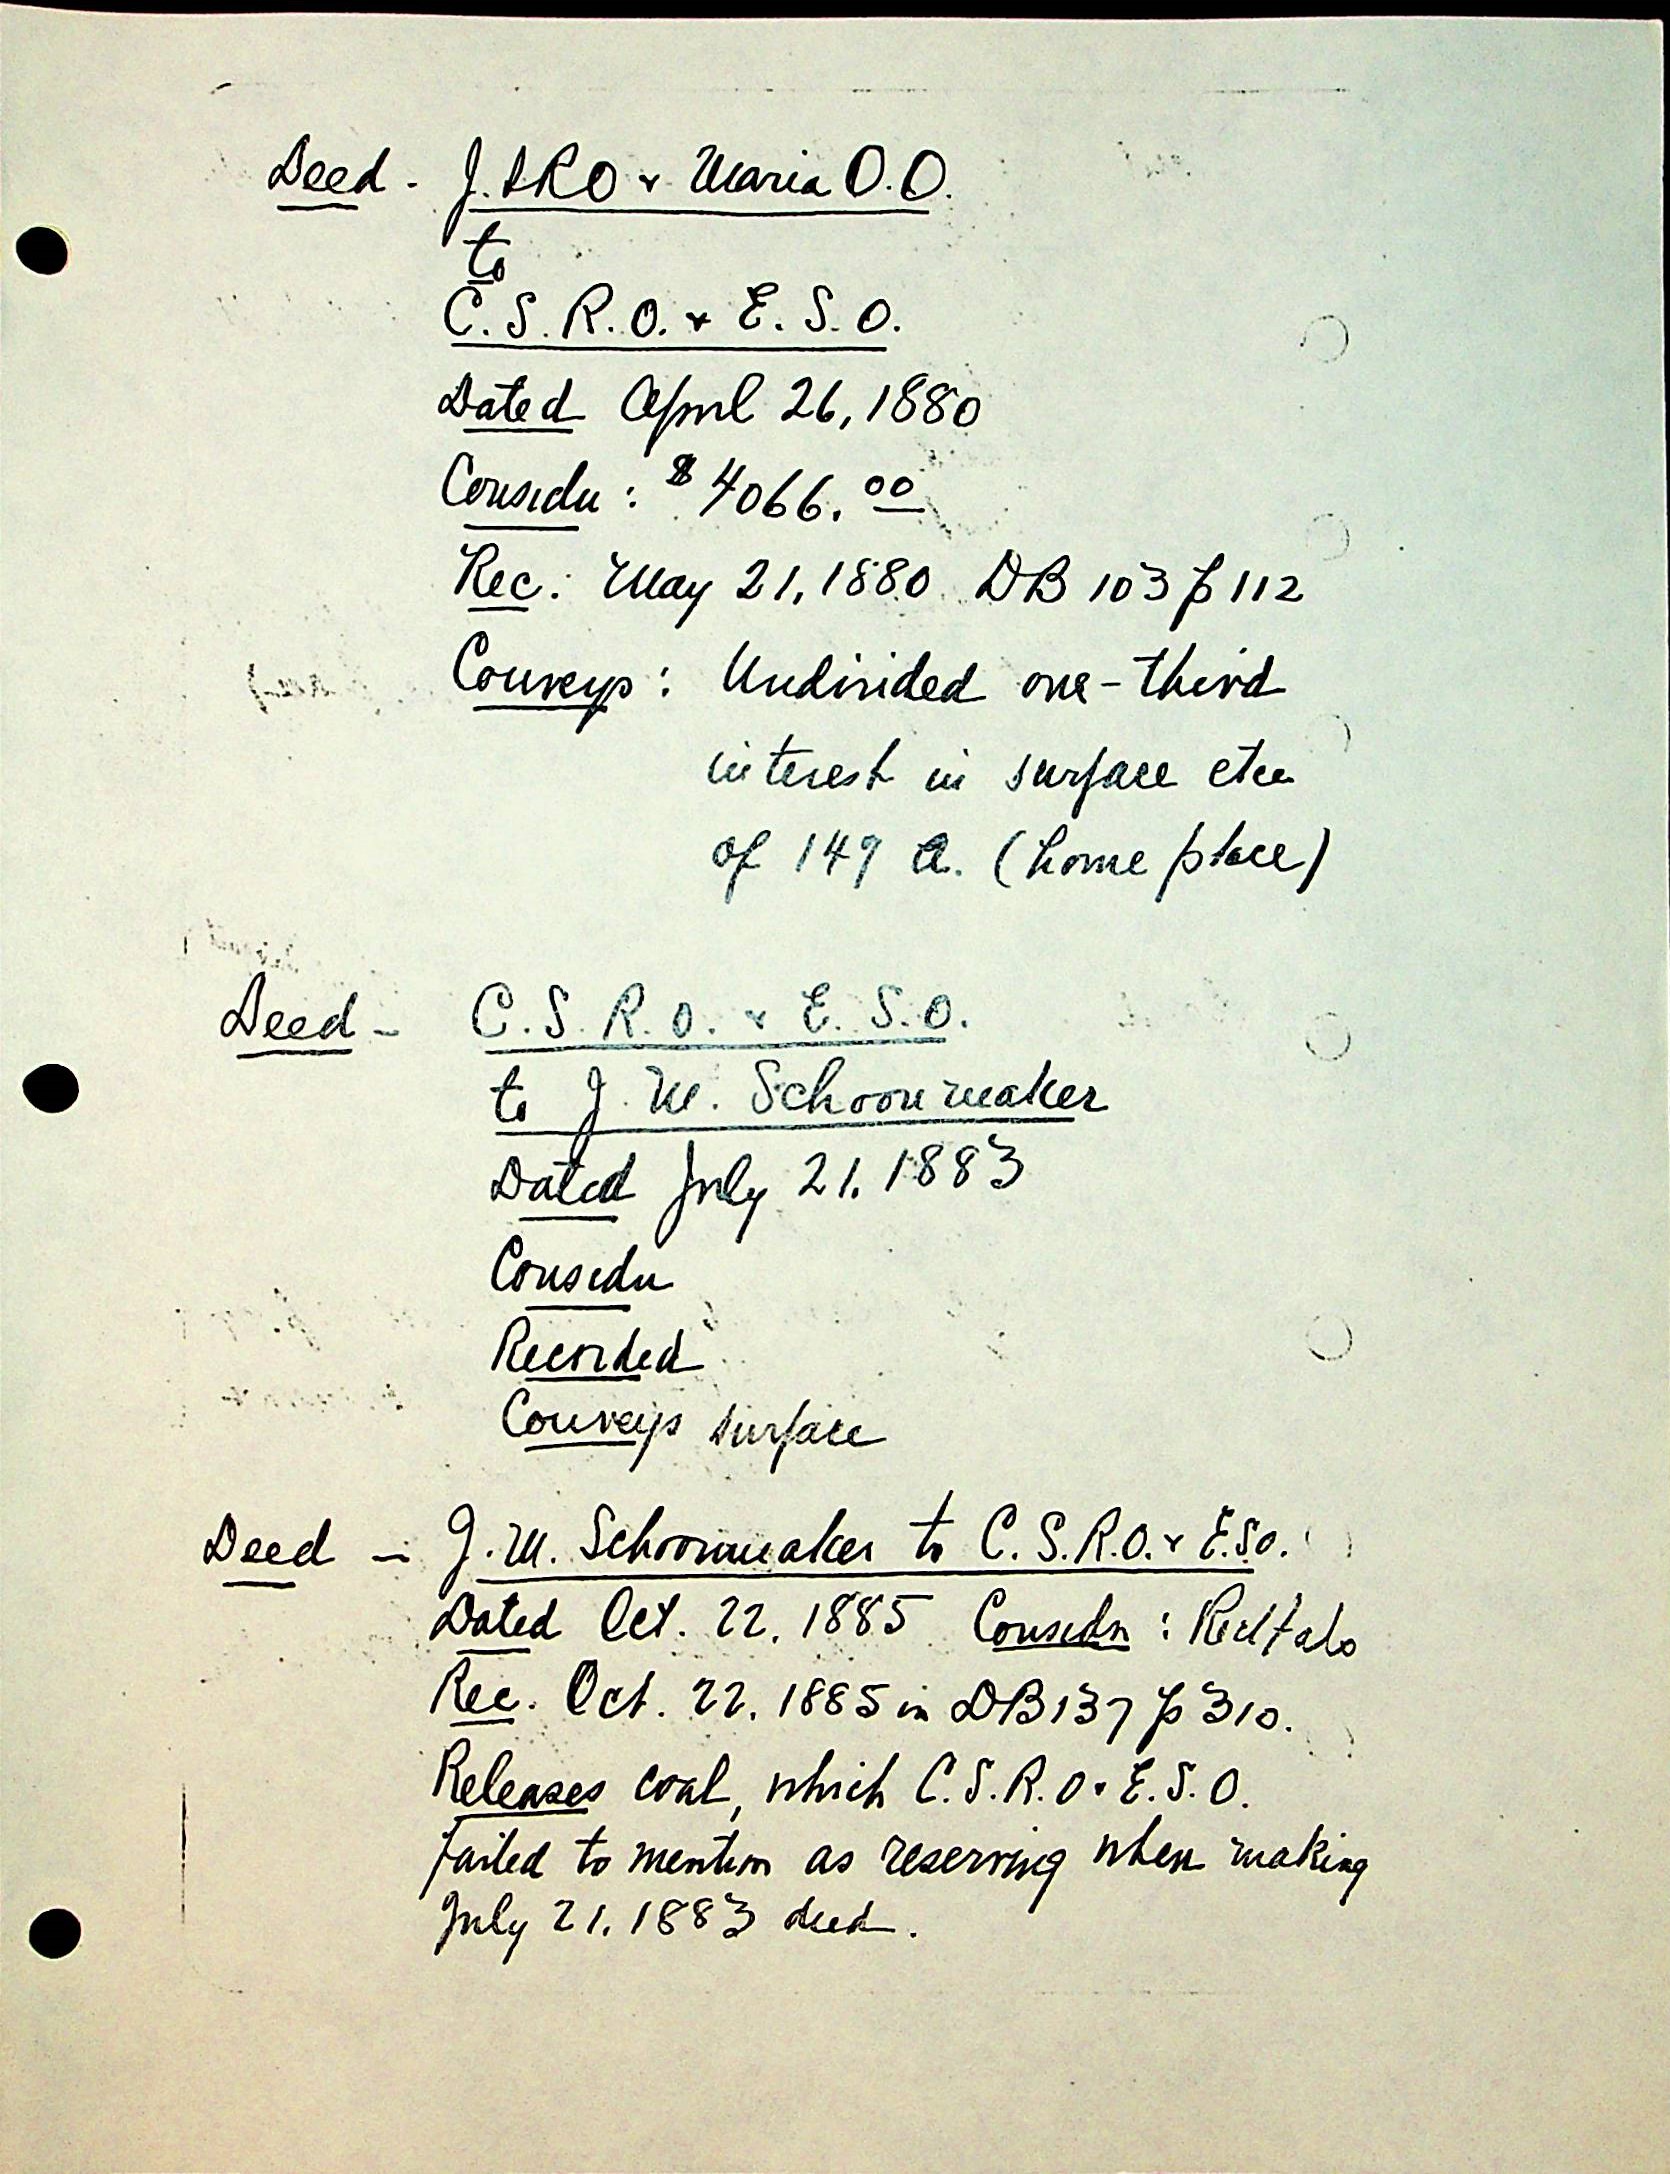 Deed - J. S R O & Maria O. O.
to
C. S. R. O. & E. S. O.
Dated April 26, 1880
Considn : $4066.00
Rec. : May 21, 1880 DB 103 p 112
Conveys : Undivided one-third
interest in surface etc
of 149 A. (home place)
Deed - C. S. R. O. & E. S. O.
to J. M. Schoonmaker
Dated July 21, 1883
Considn
Recorded
Conveys surface
Deed - J. M. Schoonmaker to C. S. R. O. & E. S. O.
Dated Oct. 22, 1885 Considn :
Rec. Oct. 22, 1885 in DB 137 p 310.
Releases coal, which C. S. R. O. & E. S. O.
failed to mention as reserving when making
July 21, 1883 deed.